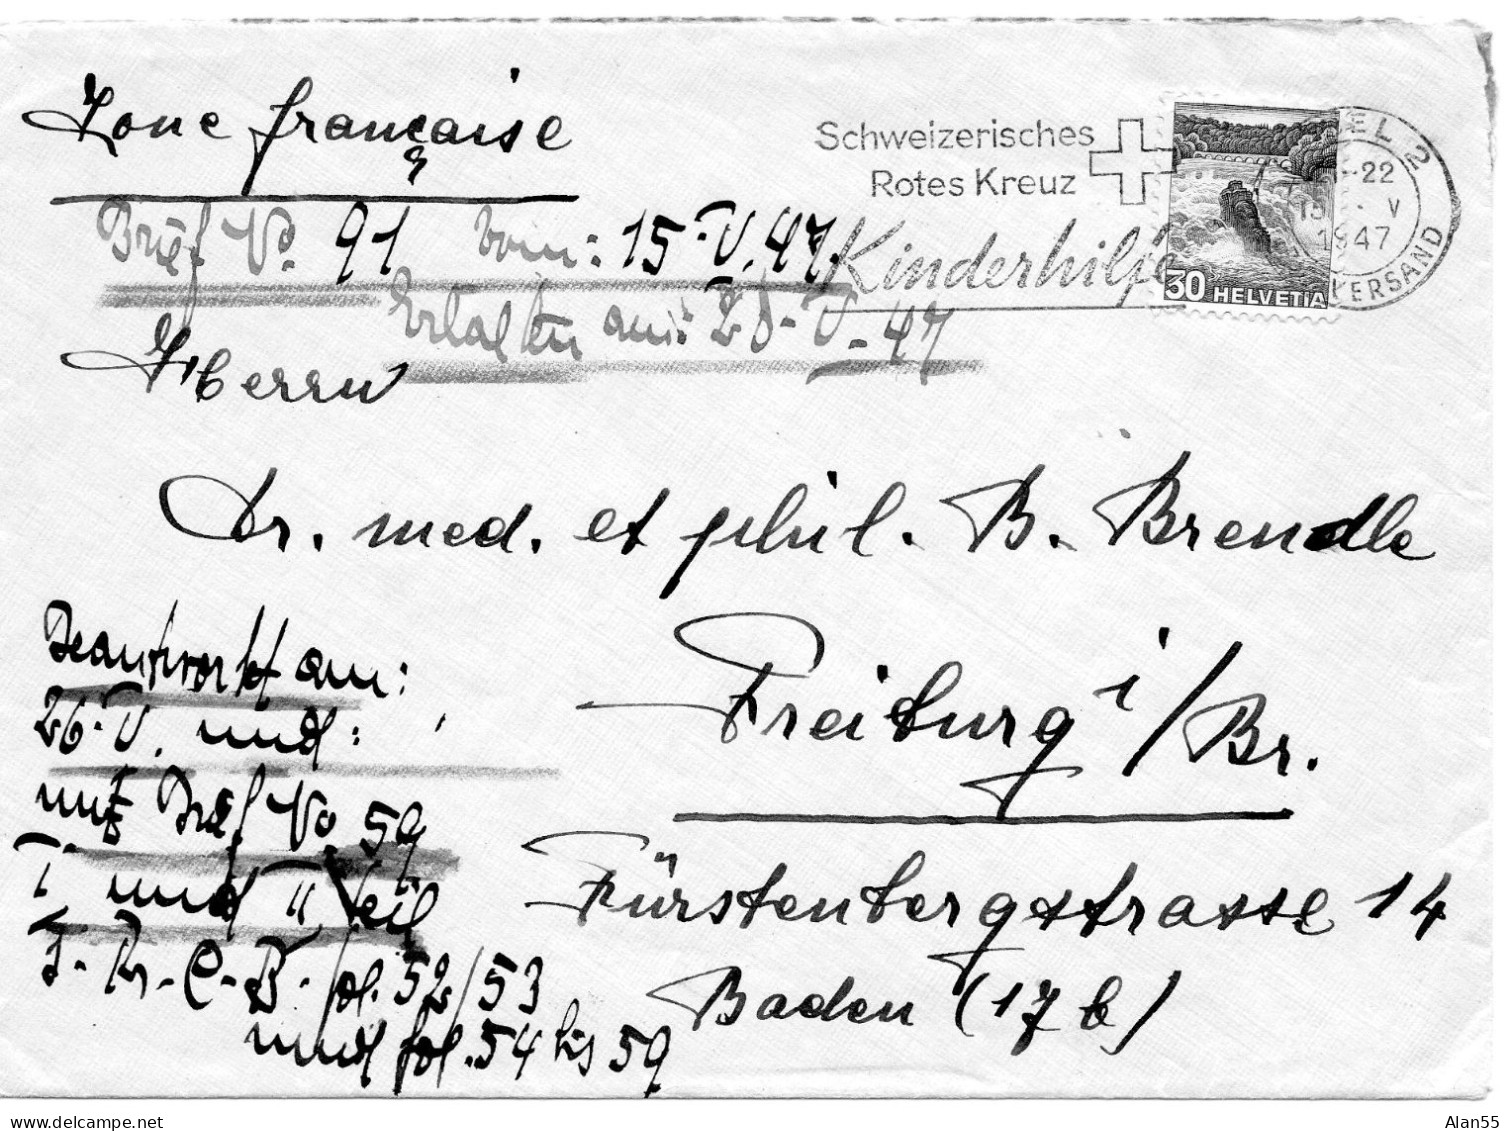 Zone française
Schweizerisches
Rotes Kreuz
Kinderhilfe
30 HELVETIA
2
-22
V
1947
Brief No. 91 vom: 15.V.47.
Erhalten am: 20-V-47
Herrn
Dr. med. et phil. B. Brendle
Beantwort am:
26.V. und:
mit Brief No. 59
I. und II. Teil
fol. 52/53
und fol. 54 bis 59
Freiburg i/Br.
Fürstenbergstrasse 14
Baden (17 b)
www.delcampe.net
Alan55